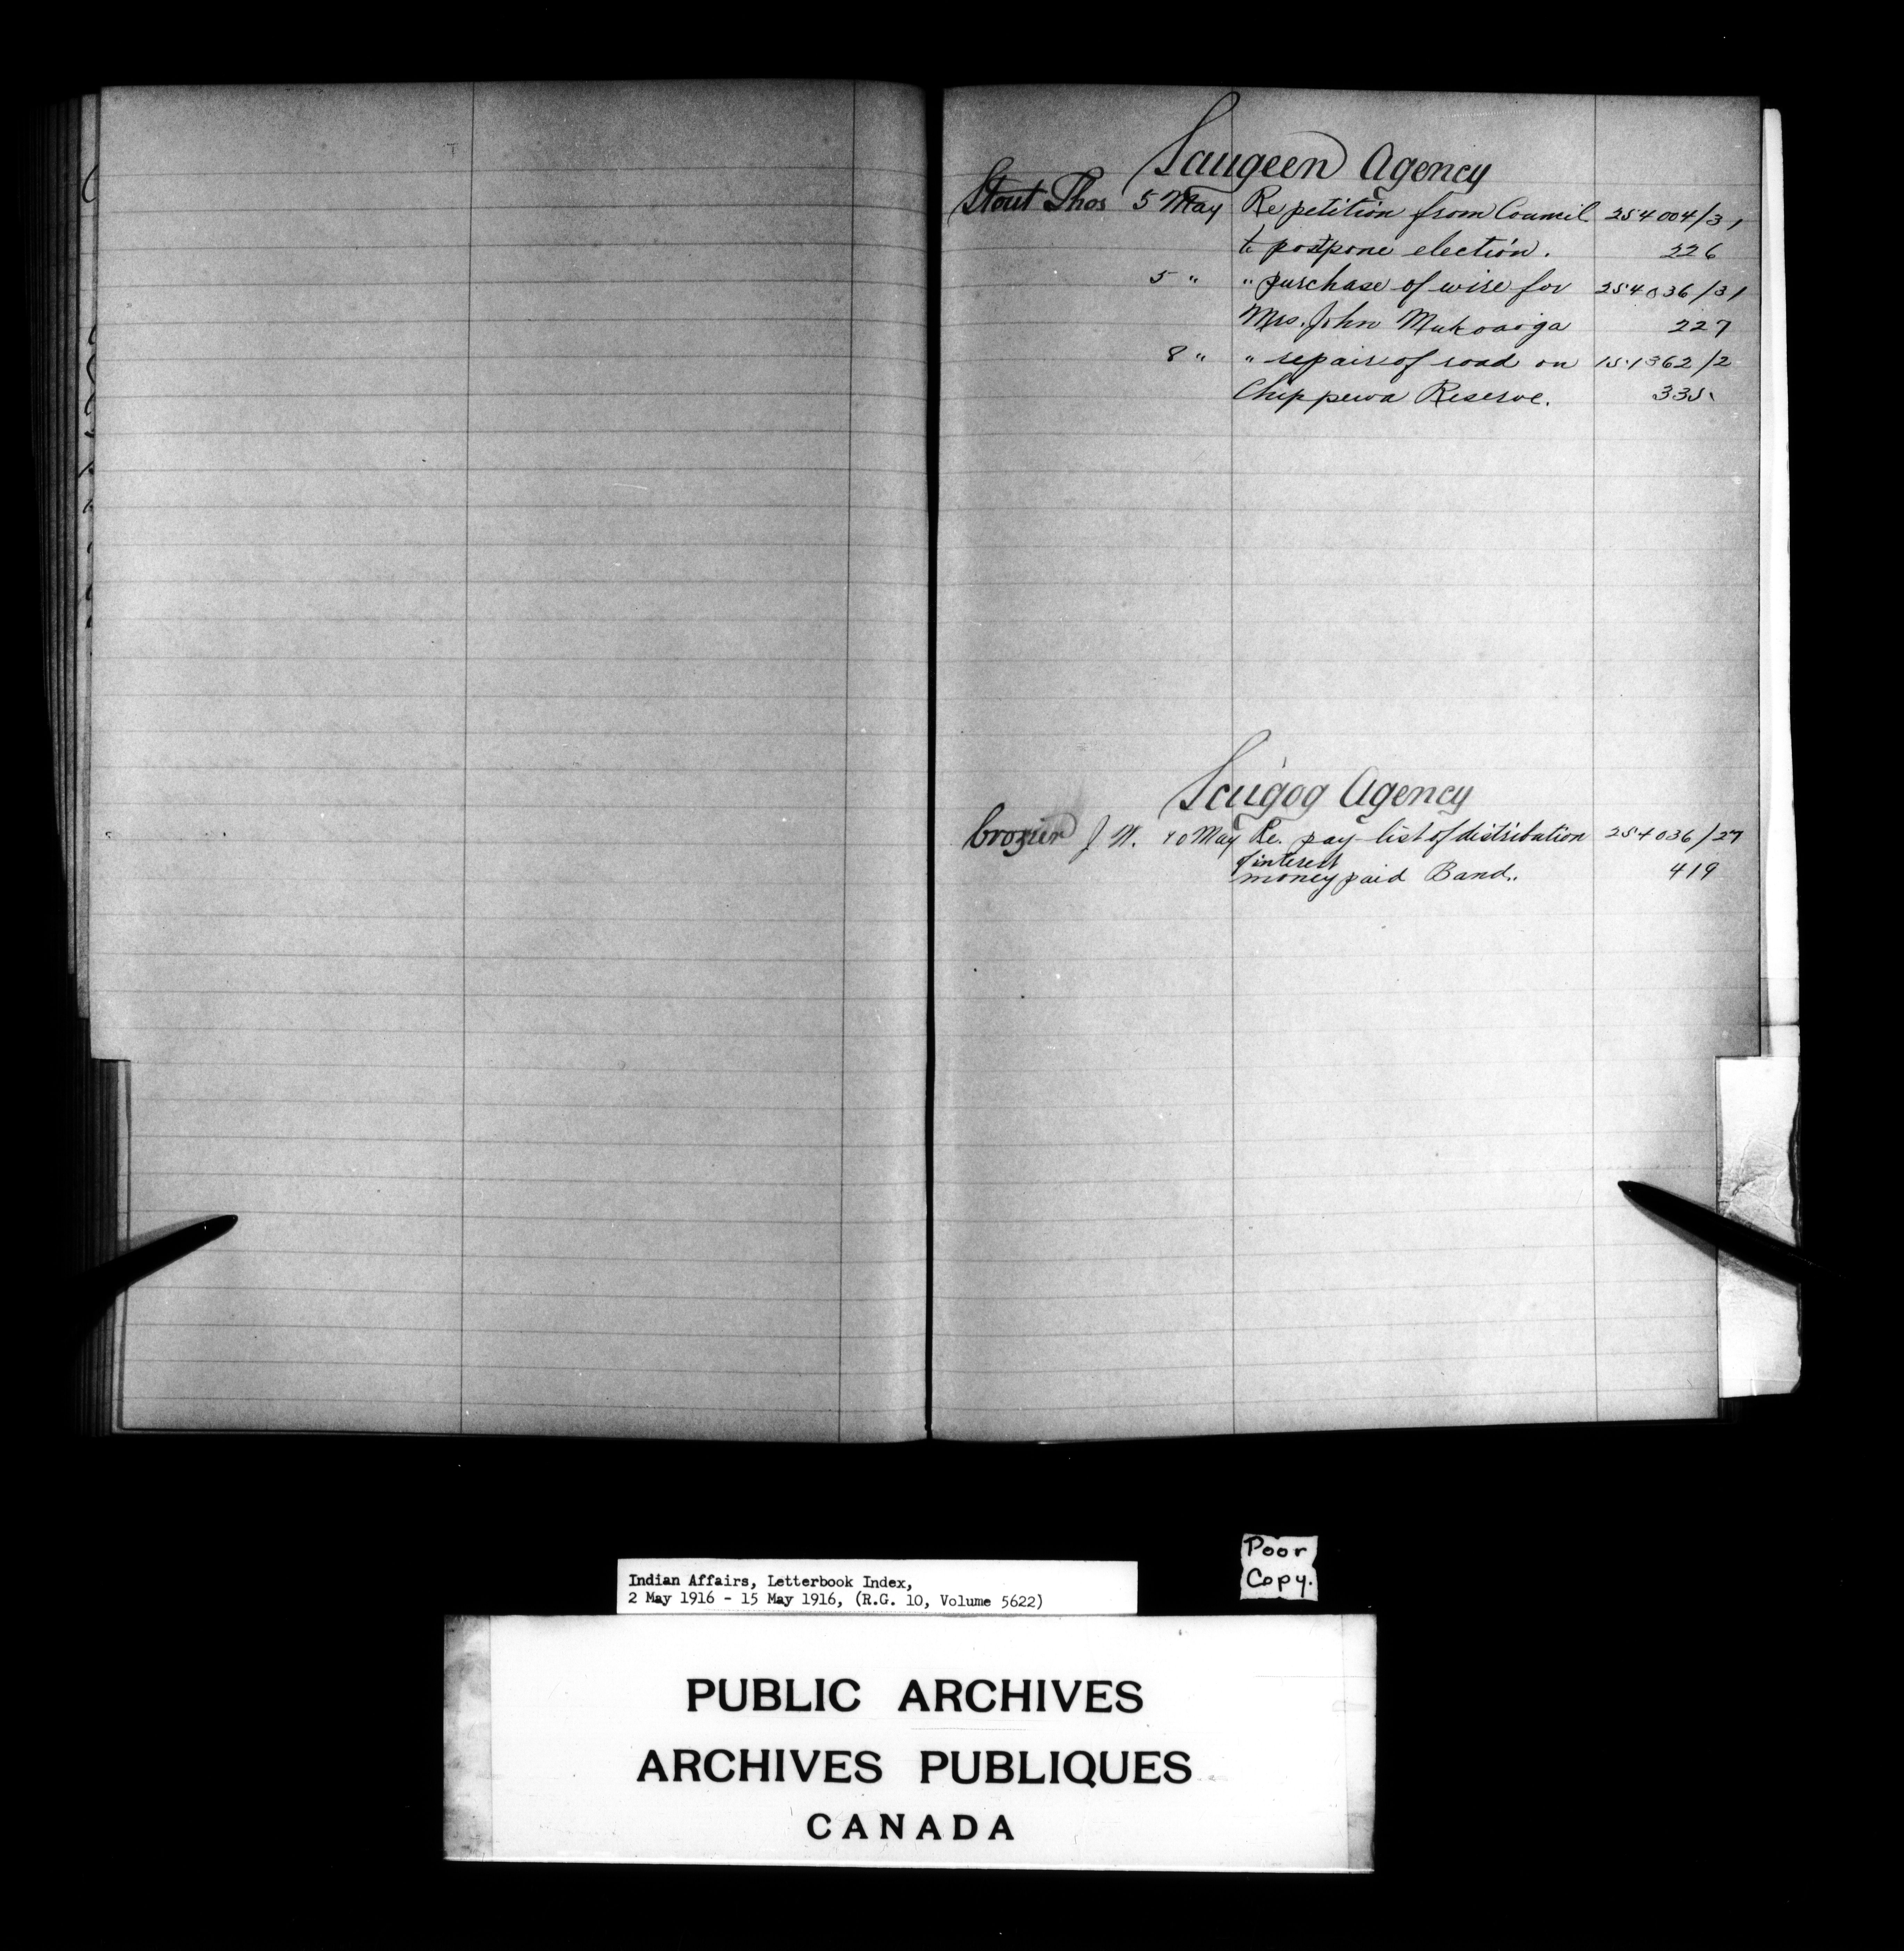 Saugeen Agency
Stout Thos 5 May Re petition from Council 254004/31
to postpone election. 226
5 " " purchase of wire for 254036/31
Mrs. John 227
8 " " repair of road on 151362/2
Chippewa Reserve. 335
Scugog Agency
Crozier J. W. 10 May Re. pay-list of distribution 254036/27
of interest
money paid Band. 419
Poor
Copy.
Indian Affairs, Letterbook Index,
2 May 1916 - 15 May 1916, (R.G. 10, Volume 5622)
PUBLIC ARCHIVES
ARCHIVES PUBLIQUES
CANADA